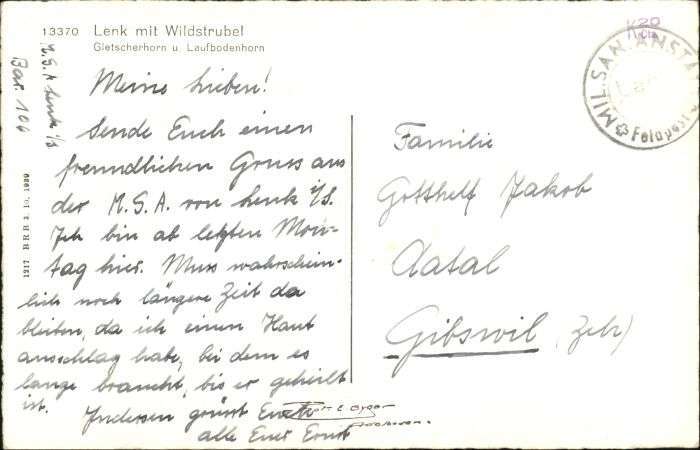 13370 Lenk mit Wildstrubel
Gletscherhorn u. Laufbodenhorn
M.S.A Lenk i/S
Bar. 106
1217 B R B 3. 10. 1939
Meine Lieben!
Sende Euch einen
freundlichen Gruss aus
der M.S.A. von Lenk i/S.
Ich bin ab letzten Mon-
tag hier. Muss wahrschein-
lich noch längere Zeit da
bleiben, da ich einen Haut
ausschlag habe, bei dem es
lange braucht, bis er geheilt
ist.
Indessen grüsst Euch
alle Euer Ernst
K 20
MIL. SAN. ANSTA
Feldpost
Familie
Gotthelf Jakob
Aatal
Gibswil (Zch)